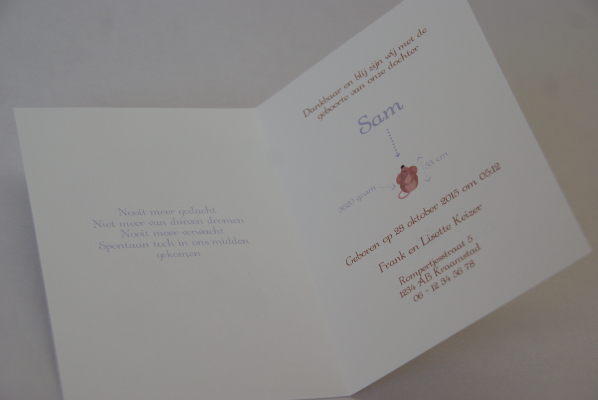 Nooit meer gedacht
Niet meer van durven dromen
Nooit meer verwacht
Spontaan toch in ons midden
gekomen
Dankbaar en blij zijn wij met de
geboorte van onze dochter
Sam
53 cm
gram
Geboren op 28 oktober 2015 om 05:12
Frank en Lisette Keizer
Rompertjesstraat 5
1234 AB Kraamstad
06 - 12 34 56 78